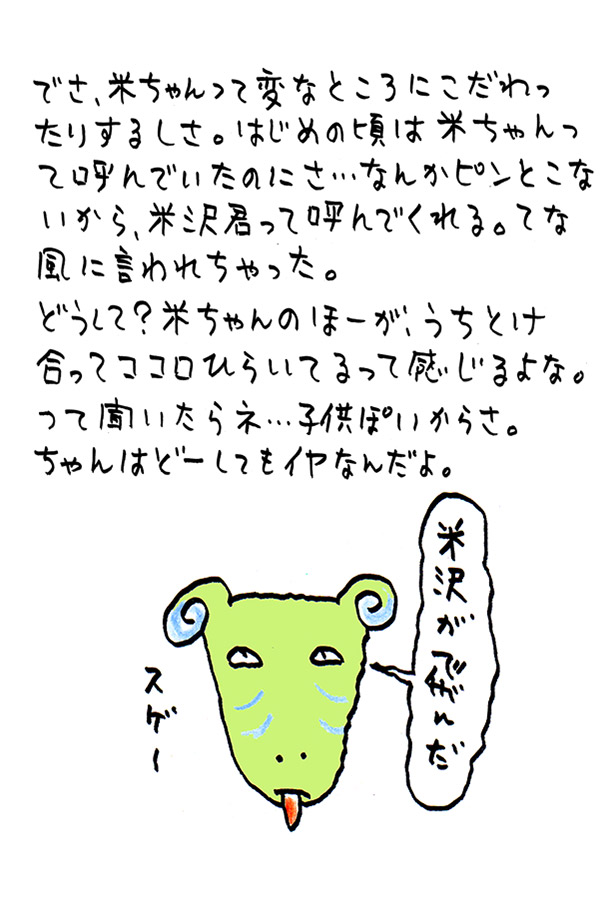 でさ、米ちゃんって変なところにこだわっ
たりするしさ。はじめの頃は米ちゃんっ
て呼んでいたのにさ…なんかピンとこな
いから、米沢君って呼んでくれる。てな
風に言われちゃった。
どうして？米ちゃんのほーが、うちとけ
合ってココロひらいてるって感じるよな。
って聞いたらネ…子供ぽいからさ。
ちゃんはどーしてもイヤなんだよ。
米沢が
スゲー